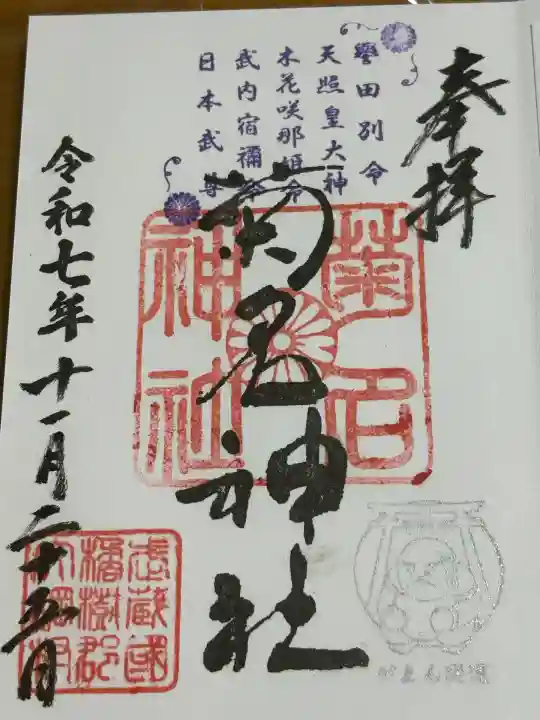 奉拝
譽田別命
天照皇大神
木花咲耶姫命
武内宿禰命
日本武尊
菊名神社
菊名
神社
令和七年十一月二十五日
武蔵國
橘樹郡
大綱村
がまんさま